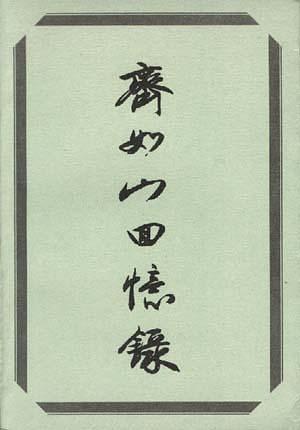 齊如山回憶錄